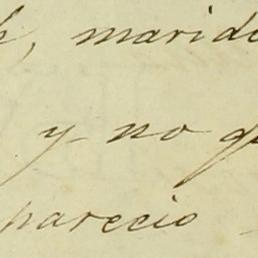 , marid
y no q
parecio